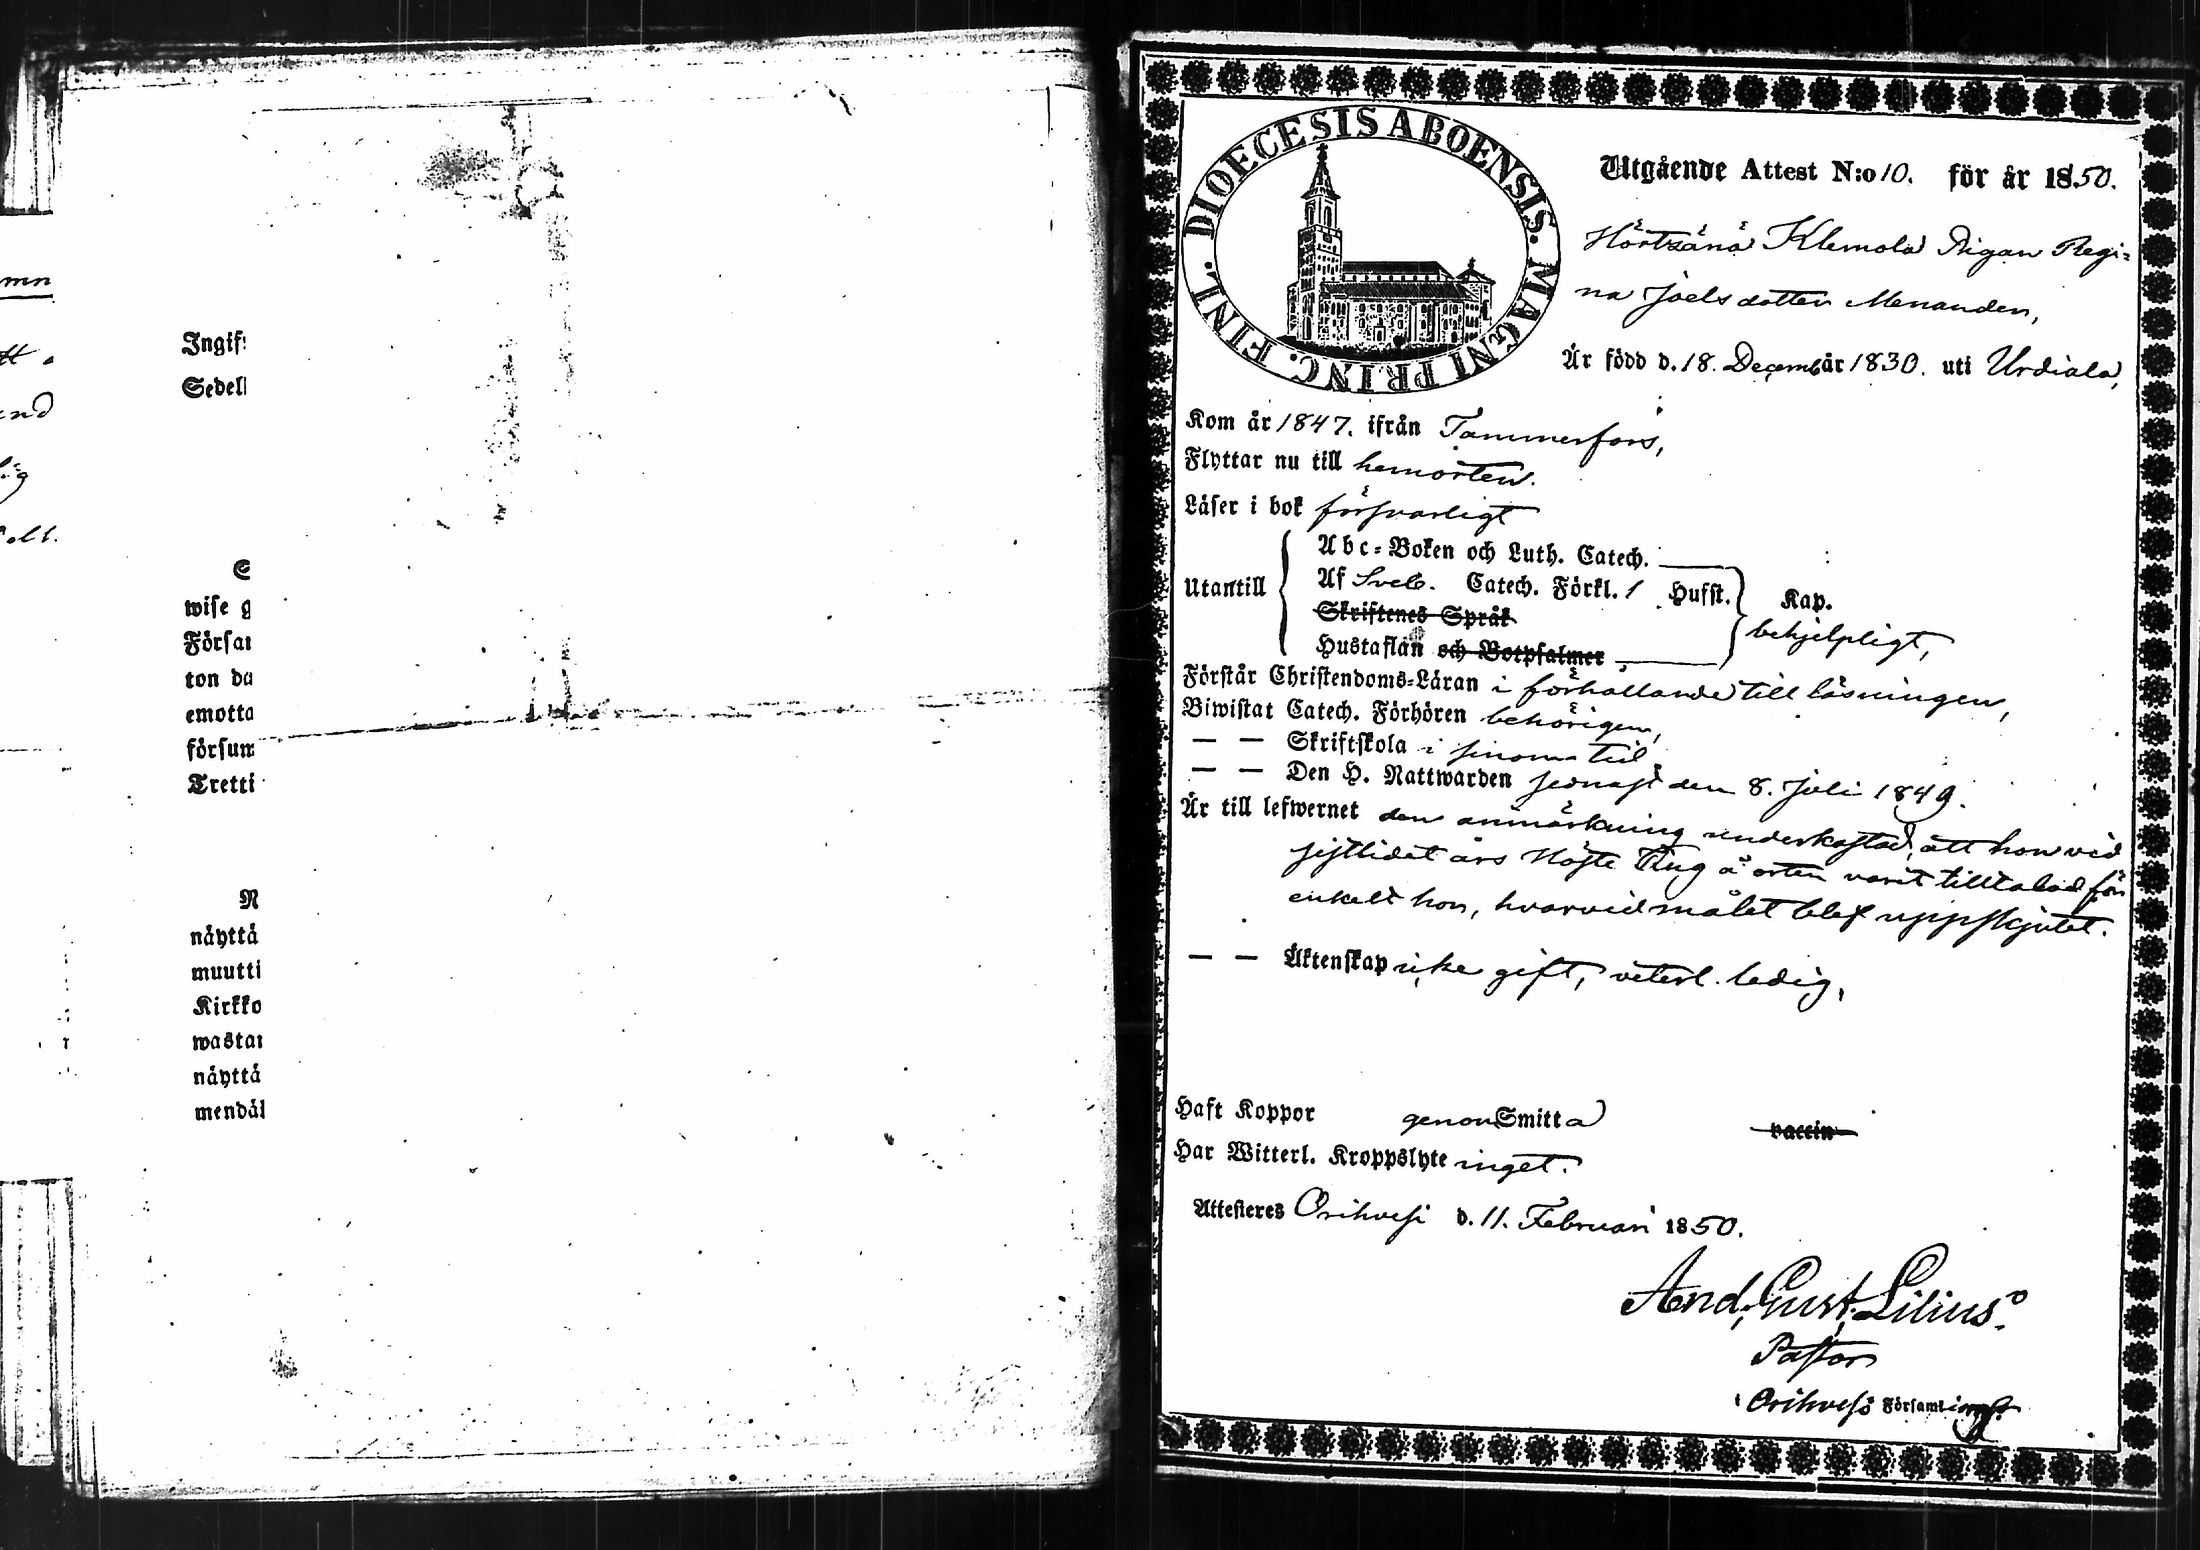 mn
tt
end
lig
olt.
Ingif
Sedel
S
wise g
Försa
ton da
emotta
försum
Tretti
N
näyttä
muutti
Kirkko
wasta
näyttä
mendäl
DIOECESIS ABOENSIS. MAGNI PRINC. FINL.
Utgående Attest N:o 10. för år 1850.
Hörtsänä Klemola Pigan Regi-
na Joels dotter Menander,
Är född d. 18. Decemb år 1830. uti Urdiala,
Kom år 1847. ifrån Tammerfors,
Flyttar nu till hemorten.
Läser i bok försvarligt
Utantill
Abc-Boken och Luth. Catech.
Af Sveb. Catech. Förkl. 1 Hufst. Kap.
Skriftenes Språk
behjelpligt,
Hustaflan och Botpsalmer
Förstår Christendoms-Läran i förhållande till läsningen,
Biwistat Catech. Förhören behörigen,
— — Skriftskola i sinom tid
— — Den H. Nattwarden sednast den 8. Juli 1849.
Är till lefwernet den anmärkning underkastad, att hon vid
sistlidet års Höste Ting å orten varit tilltalad för
enkelt hor, hvarvid målet blef uppskjutet.
— — Äktenskap icke gift, veterl. ledig,
Haft Koppor genom Smitta vaccin
Har Witterl. Kroppslyte inget.
Attesteres Orihvesi d. 11. Februari 1850.
And. Gust. Lilius.
Pastor
Orihvesi Församling